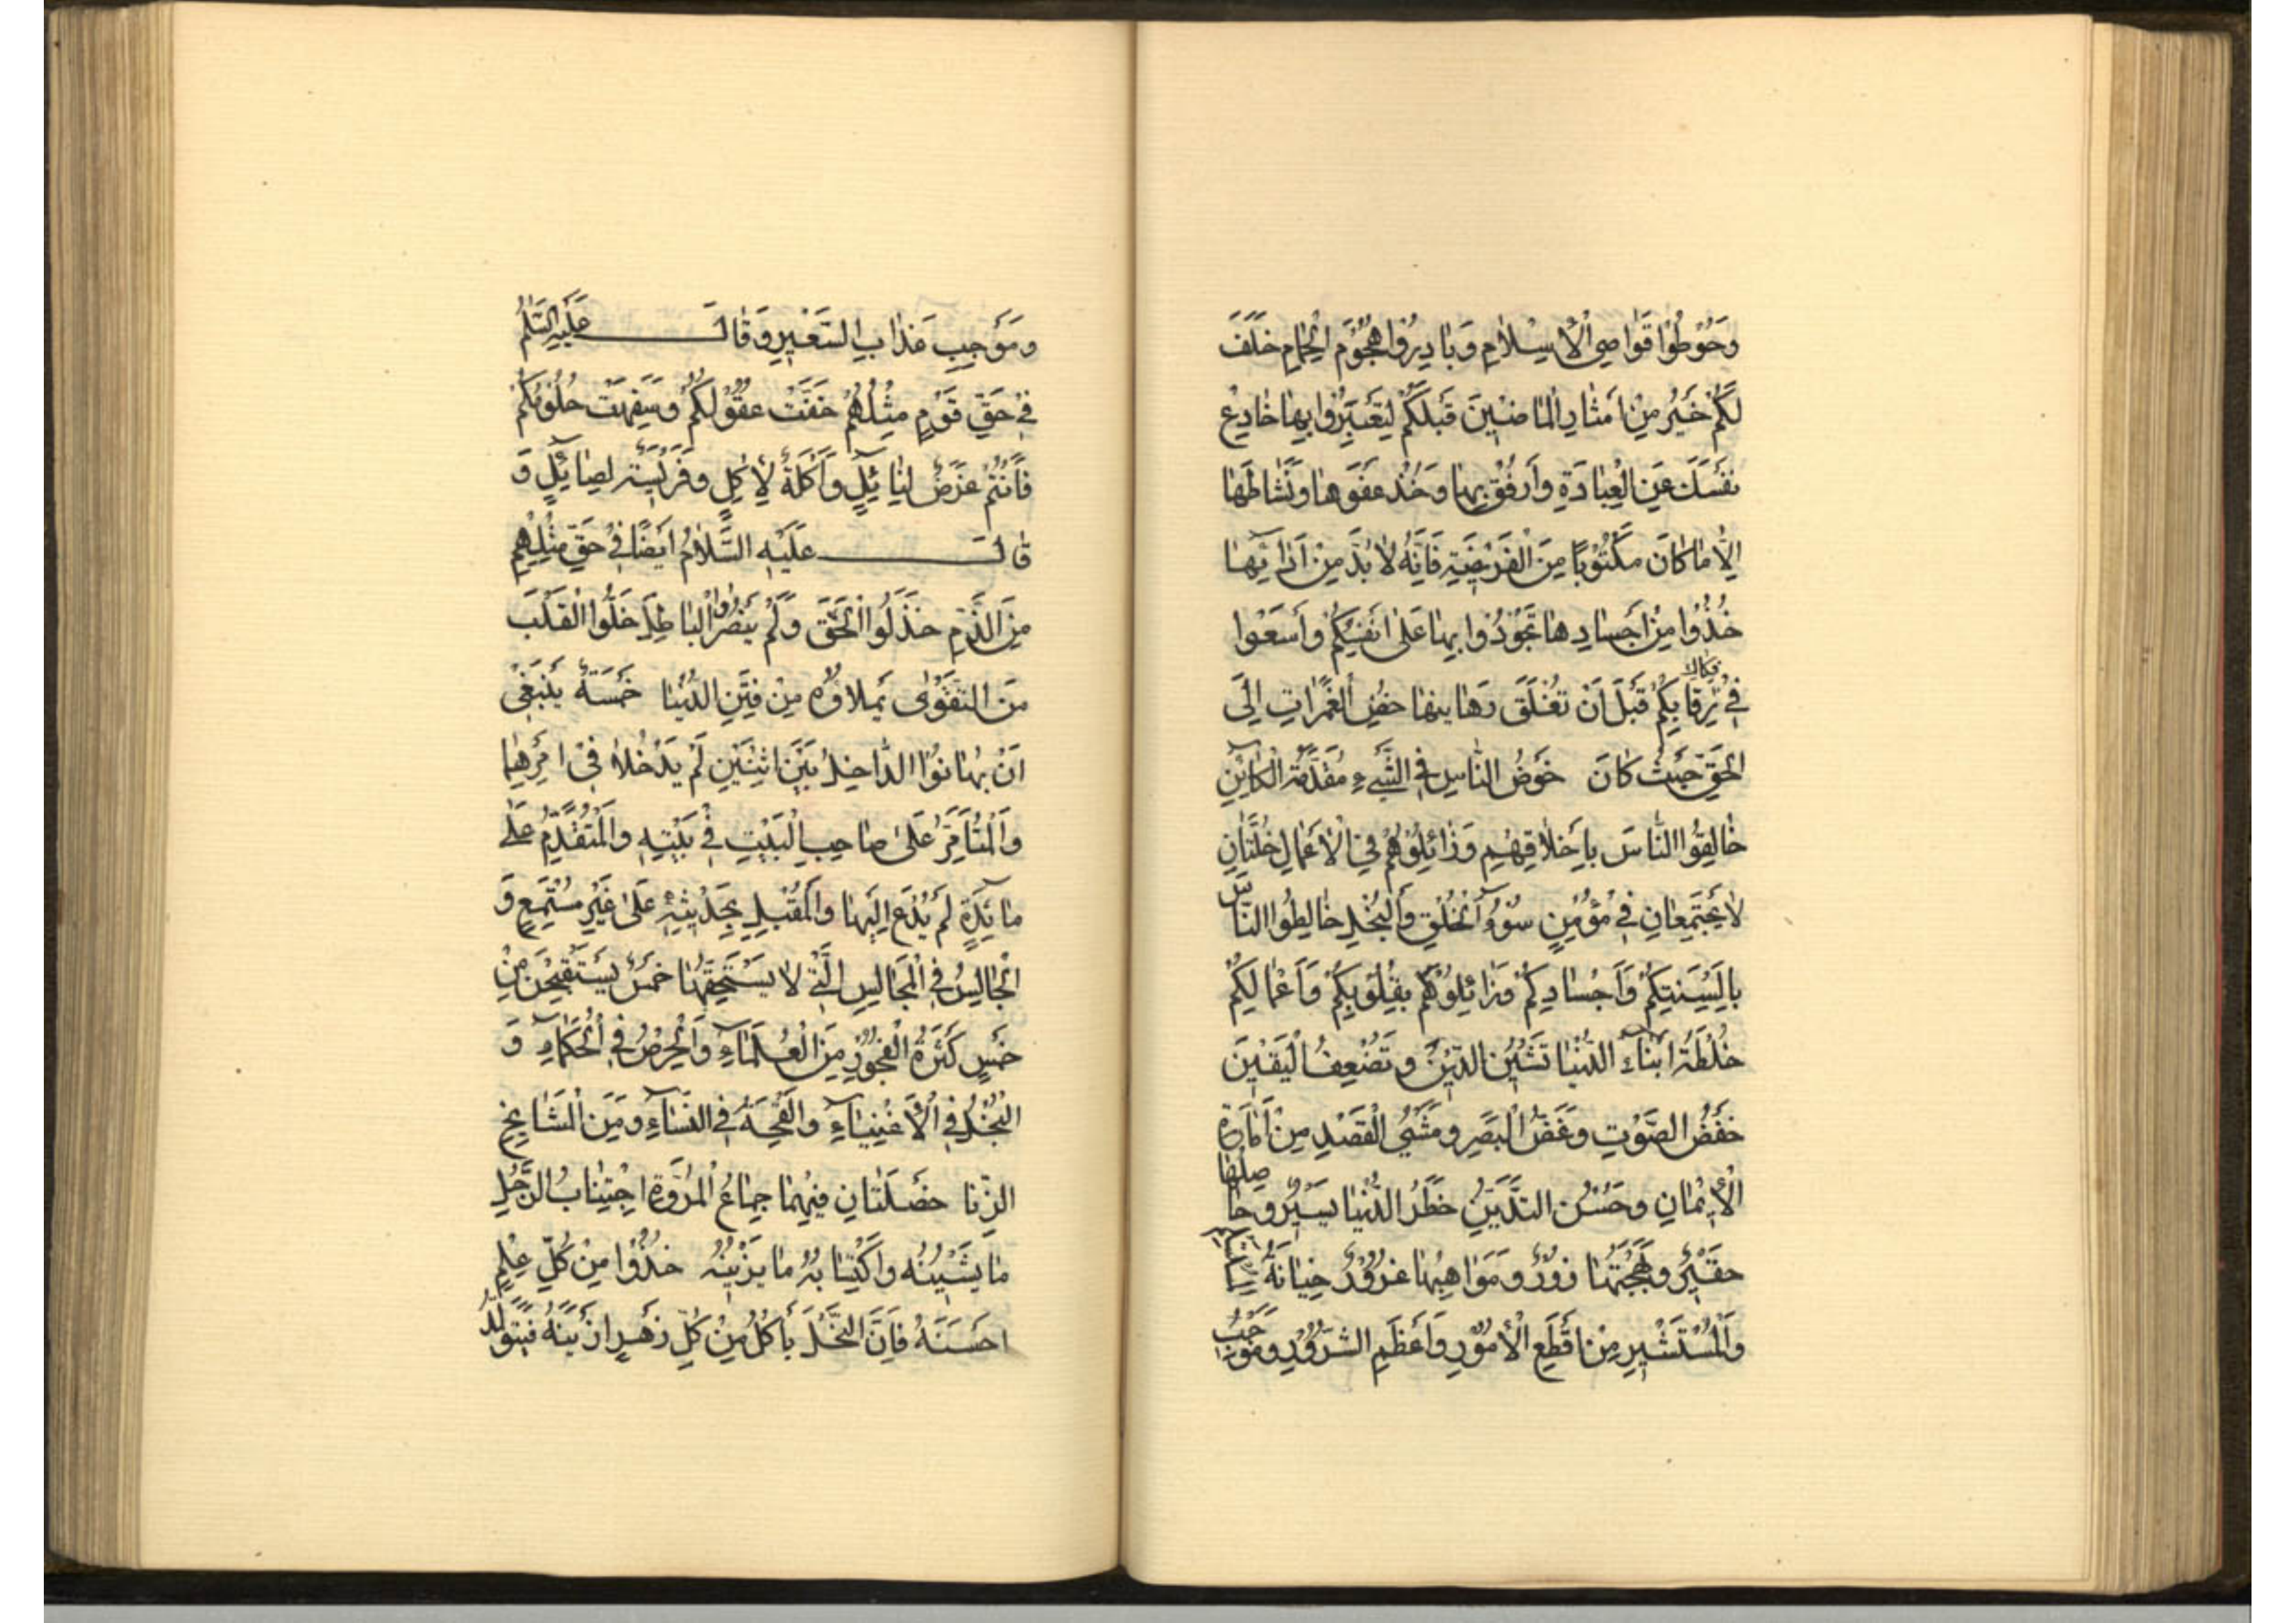 وَحُوْطُوْا قَوٰاصِی الْاِسْلٰامِ وَبٰادِرُوا هُجُوْمَ الْحِمٰامِ خَلَّفَ
لَکُمْ خَیْرُ مِنْ اَمْثٰارِ الْمٰاضِیْنَ قَبْلَکُمْ لِتَعْتَبِرُوا بِهٰا خٰادِعْ
نَفْسَكَ عَنِ الْعِبٰادَةِ وَارْفُقْ بِهٰا وَخُذْ عَفْوَهٰا وَنَشٰاطَهٰا
اِلّٰا مٰا کٰانَ مَکْتُوْبًا مِنَ الْفَرِیْضَةِ فَاِنَّهُ لٰا بُدَّ مِنْ اَدٰائِهٰا
خُذُوا مِنْ اَجْسٰادِهٰا تَجُوْدُوا بِهٰا عَلٰی اَنْفُسِکُمْ وَاسْعَوْا
فِیْ فِکٰاكِ رِقٰابِکُمْ قَبْلَ اَنْ تُغْلَقَ رَهٰاینهٰا خُضِ الْغَمَرٰاتِ اِلَی
الْحَقِّ حَیْثُ کٰانَ خَوْضُ النّٰاسِ فِی الشَّیْءِ مُقَدَّمَةُ الْکٰائِنِ
خٰالِقُوا النّٰاسَ بِاَخْلٰاقِهِمِ وَزٰائِلُوْهُمْ فِی الْاَعْمٰالِ خُلَّتٰانِ
لٰا یَجْتَمِعٰانِ فِیْ مُؤْمِنٍ سُوْءُ الْخُلْقِ وَالْبُخْلِ خٰالِطُوا النّٰاسَ
بِاَلْسِنَتِکُمْ وَاَجْسٰادِکُمْ وَزٰائِلُوْهُمْ بِقُلُوْبِکُمْ وَاَعْمٰالِکُمْ
خُلْطَةُ اَبْنٰآءِ الدُّنْیٰا تَشِیْنُ الدِّیْنَ وَتُضْعِفُ الْیَقِیْنَ
خَفْضُ الصَّوْتِ وَغَضُّ الْبَصَرِ وَمَشْیُ الْقَصْدِ مِنْ اَمٰارَةِ
الْاِیْمٰانِ وَحُسْنِ التَّدَیُّنِ خَطَرُ الدُّنْیٰا یَسِیْرُ وَحٰاصِلُهٰا
حَقِیْرُ وَبَهْجَتُهٰا زُوْرُ وَمَوٰاهِبُهٰا غُرُوْرُ خِیٰانَةُ
وَالْمُسْتَشِیْرِ مِنْ اَفْظَعِ الْاُمُوْرِ وَاَعْظَمِ الشُّرُوْرِ وَمُوْجِبُ
وَمُوْجِبِ عَذٰابِ السَّعِیْرِ وَقٰالَ عَلَیْهِ السَّلٰمُ
فِیْ حَقِّ قَوْمٍ مِثْلُهُمْ خَفَّتْ عُقُوْلُکُمْ وَسَفِهَتْ حُلُوْمُکُمْ
فَاَنْتُمْ غَرَضُ لِنٰائِلٍ وَاُکْلَةُ لِاٰکِلٍ وَفَرِیْسَةُ لِصٰائِلٍ وَ
قٰالَ عَلَیْهِ السَّلٰامُ اَیْضًا فِیْ حَقِّ مِثْلِهِمِ
مِنَ الذَّمِ خَذَلُوا الْحَقَّ وَلَمْ یَنْصُرُوا الْبٰاطِلَ خَلُّوا الْقَلْبَ
مِنَ التَّقْوٰی یَملٰاؤُه مِنْ فِتَنِ الدُّنْیٰا خَمْسَةُ یَنْبَغِیْ
اَنْ یُهٰانُوْا الدّٰاخِلُ بَیْنَ اثْنَیْنِ لَمْ یُدْخِلٰاهُ فِیْ اَمْرِهِمٰا
وَالْمُتَأَمِّرُ عَلٰی صٰاحِبِ الْبَیْتِ فِیْ بَیْتِهِ وَالْمُتَقَدِّمُ عَلٰی
مٰائِدَةٍ لَمْ یُدْعَ اِلَیْهٰا وَالْمُقْبِلِ بِحَدِیْثِهِ عَلٰی غَیْرِ مُسْتَمِعٍ وَ
الْجٰالِسُ فِی الْمَجٰالِسِ الَّتِیْ لٰا یَسْتَحِقُّهٰا خَمْسُ یُسْتَقْبَحْنَ مِنْ
خَمْسٍ کَثْرَةُ الْفُجُوْرِ مِنَ الْعُلَمٰآءِ وَالْحِرْصُ فِی الْحُکَمٰآءِ وَ
الْبُخْلُ فِی الْاَغْنِیٰآءِ وَالْقِحَةُ فِی النِّسٰآءِ وَمِنَ الْمَشٰایِخِ
الزِّنٰا خَصْلَتٰانِ فِیْهِمٰا جِمٰاعُ الْمُرُوَّةِ اجْتِنٰابُ الرَّجُلِ
مٰا یَشِیْنُهُ وَاکْتِسٰابُهُ مٰا یَزِیْنُهُ خُذُوْا مِنْ کُلِّ عِلْمٍ
اَحْسَنَهُ فَاِنَّ النَّحْلَ یَأْکُلُ مِنْ کُلِّ زَهْرٍ اَزْیَنَهُ فَیَتَوَلَّدُ